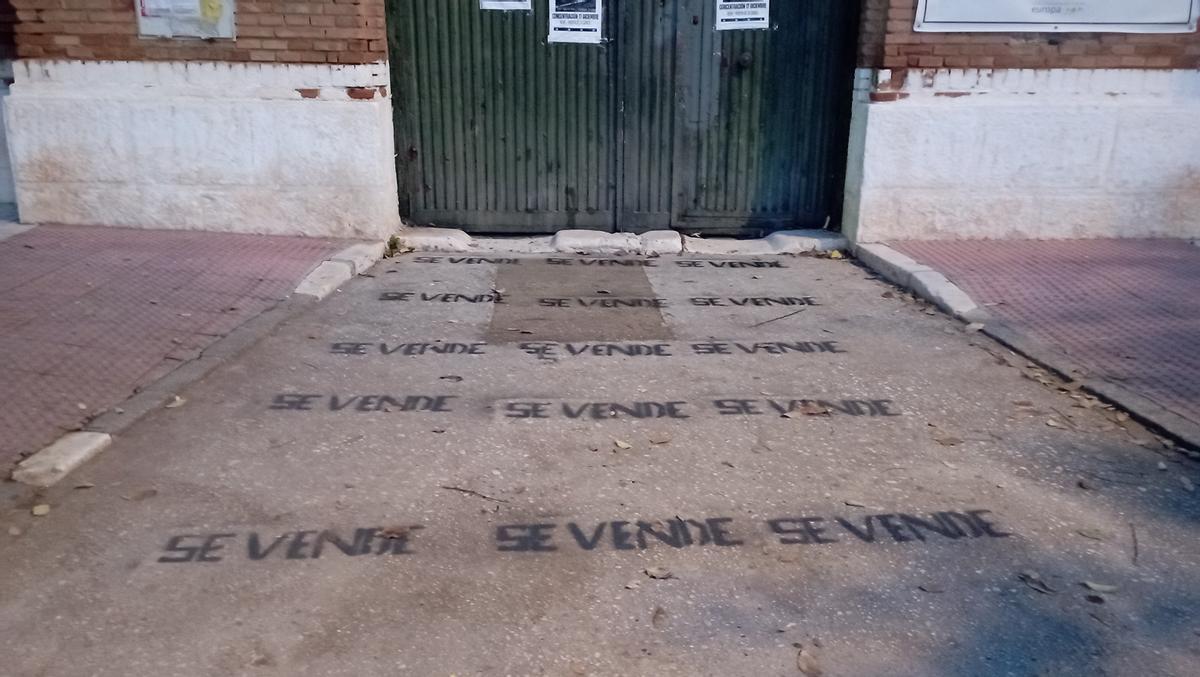 CONCENTRACIÓN 17 DICIEMBRE
CONCENTRACIÓN 17 DICIEMBRE
europa
SE VENDE SE VENDE SE VENDE
SE VENDE SE VENDE SE VENDE
SE VENDE SE VENDE SE VENDE
SE VENDE SE VENDE SE VENDE
SE VENDE SE VENDE SE VENDE